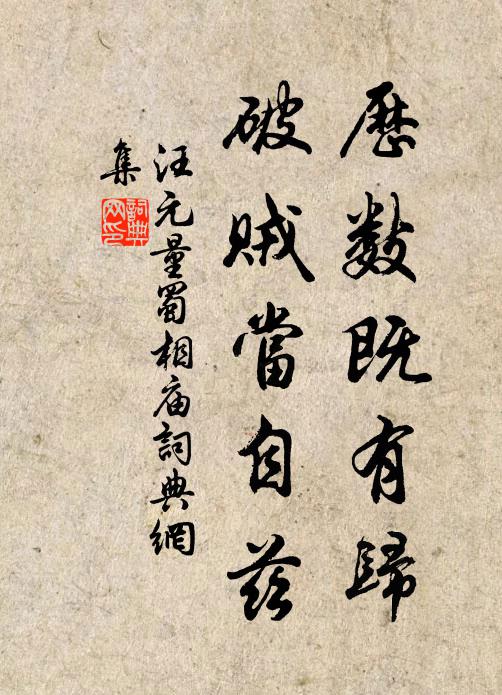 歷數既有歸
破賊當自茲
汪元量蜀相庙詞典網
集
詞典網印